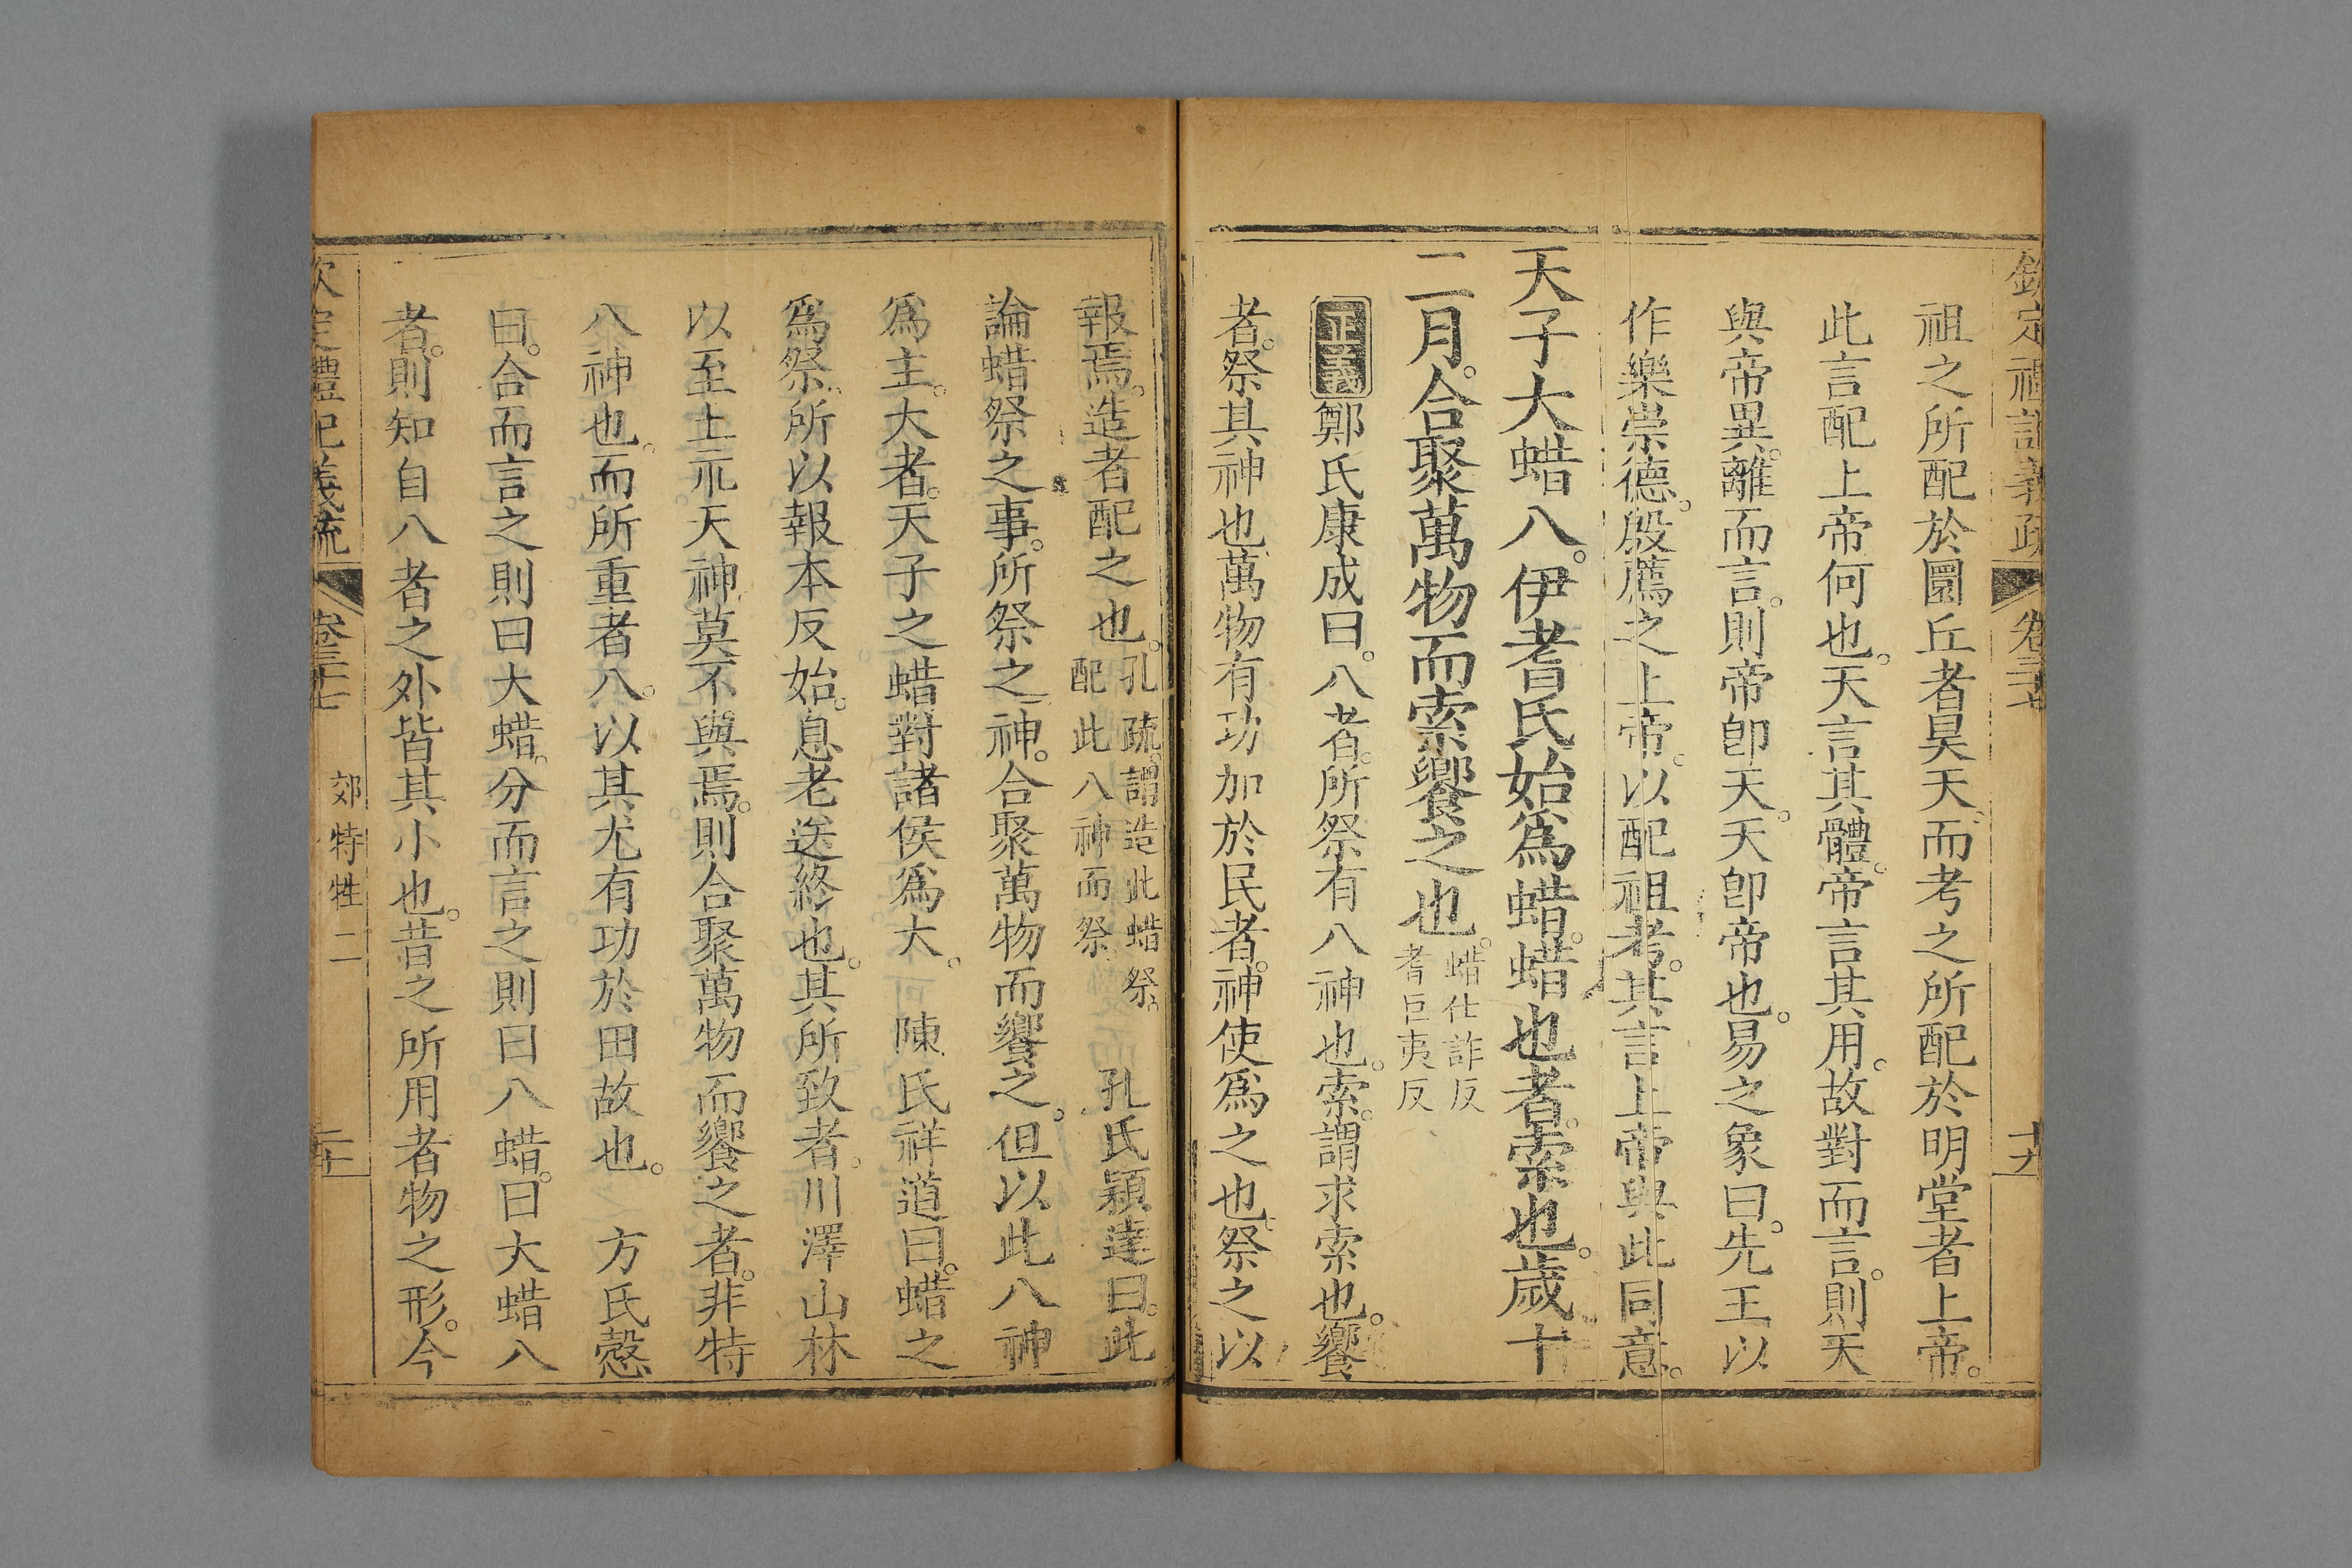 欽定禮記義疏 卷三十七 十九
祖之所配於圜丘者昊天而考之所配於明堂者上帝。
此言配上帝何也。天言其體。帝言其用。故對而言。則天
與帝異。離而言。則帝卽天。天卽帝也。易之象曰。先王以
作樂崇德。殷薦之上帝。以配祖考。其言上帝與此同意。
天子大蜡八。伊耆氏始爲蜡。蜡也者。索也。歲十
二月。合聚萬物而索饗之也。蜡仕詐反
耆巨夷反
正義 鄭氏康成曰。八者。所祭有八神也。索。謂求索也。饗
者。祭其神也。萬物有功加於民者。神使爲之也。祭之以
報焉。造者配之也。孔疏。謂造此蜡祭。
配此八神而祭 孔氏穎達曰。此
論蜡祭之事。所祭之神。合聚萬物而饗之。但以此八神
爲主。大者。天子之蜡對諸侯爲大。 陳氏祥道曰。蜡之
爲祭。所以報本反始。息老送終也。其所致者。川澤山林
以至土示天神。莫不與焉。則合聚萬物而饗之者。非特
八神也。而所重者八。以其尤有功於田故也。 方氏慤
曰。合而言之則曰大蜡。分而言之則曰八蜡。曰大蜡八
者。則知自八者之外皆其小也。昔之所用者物之形。今
欽定禮記義疏 卷三十七 郊特牲二 二十